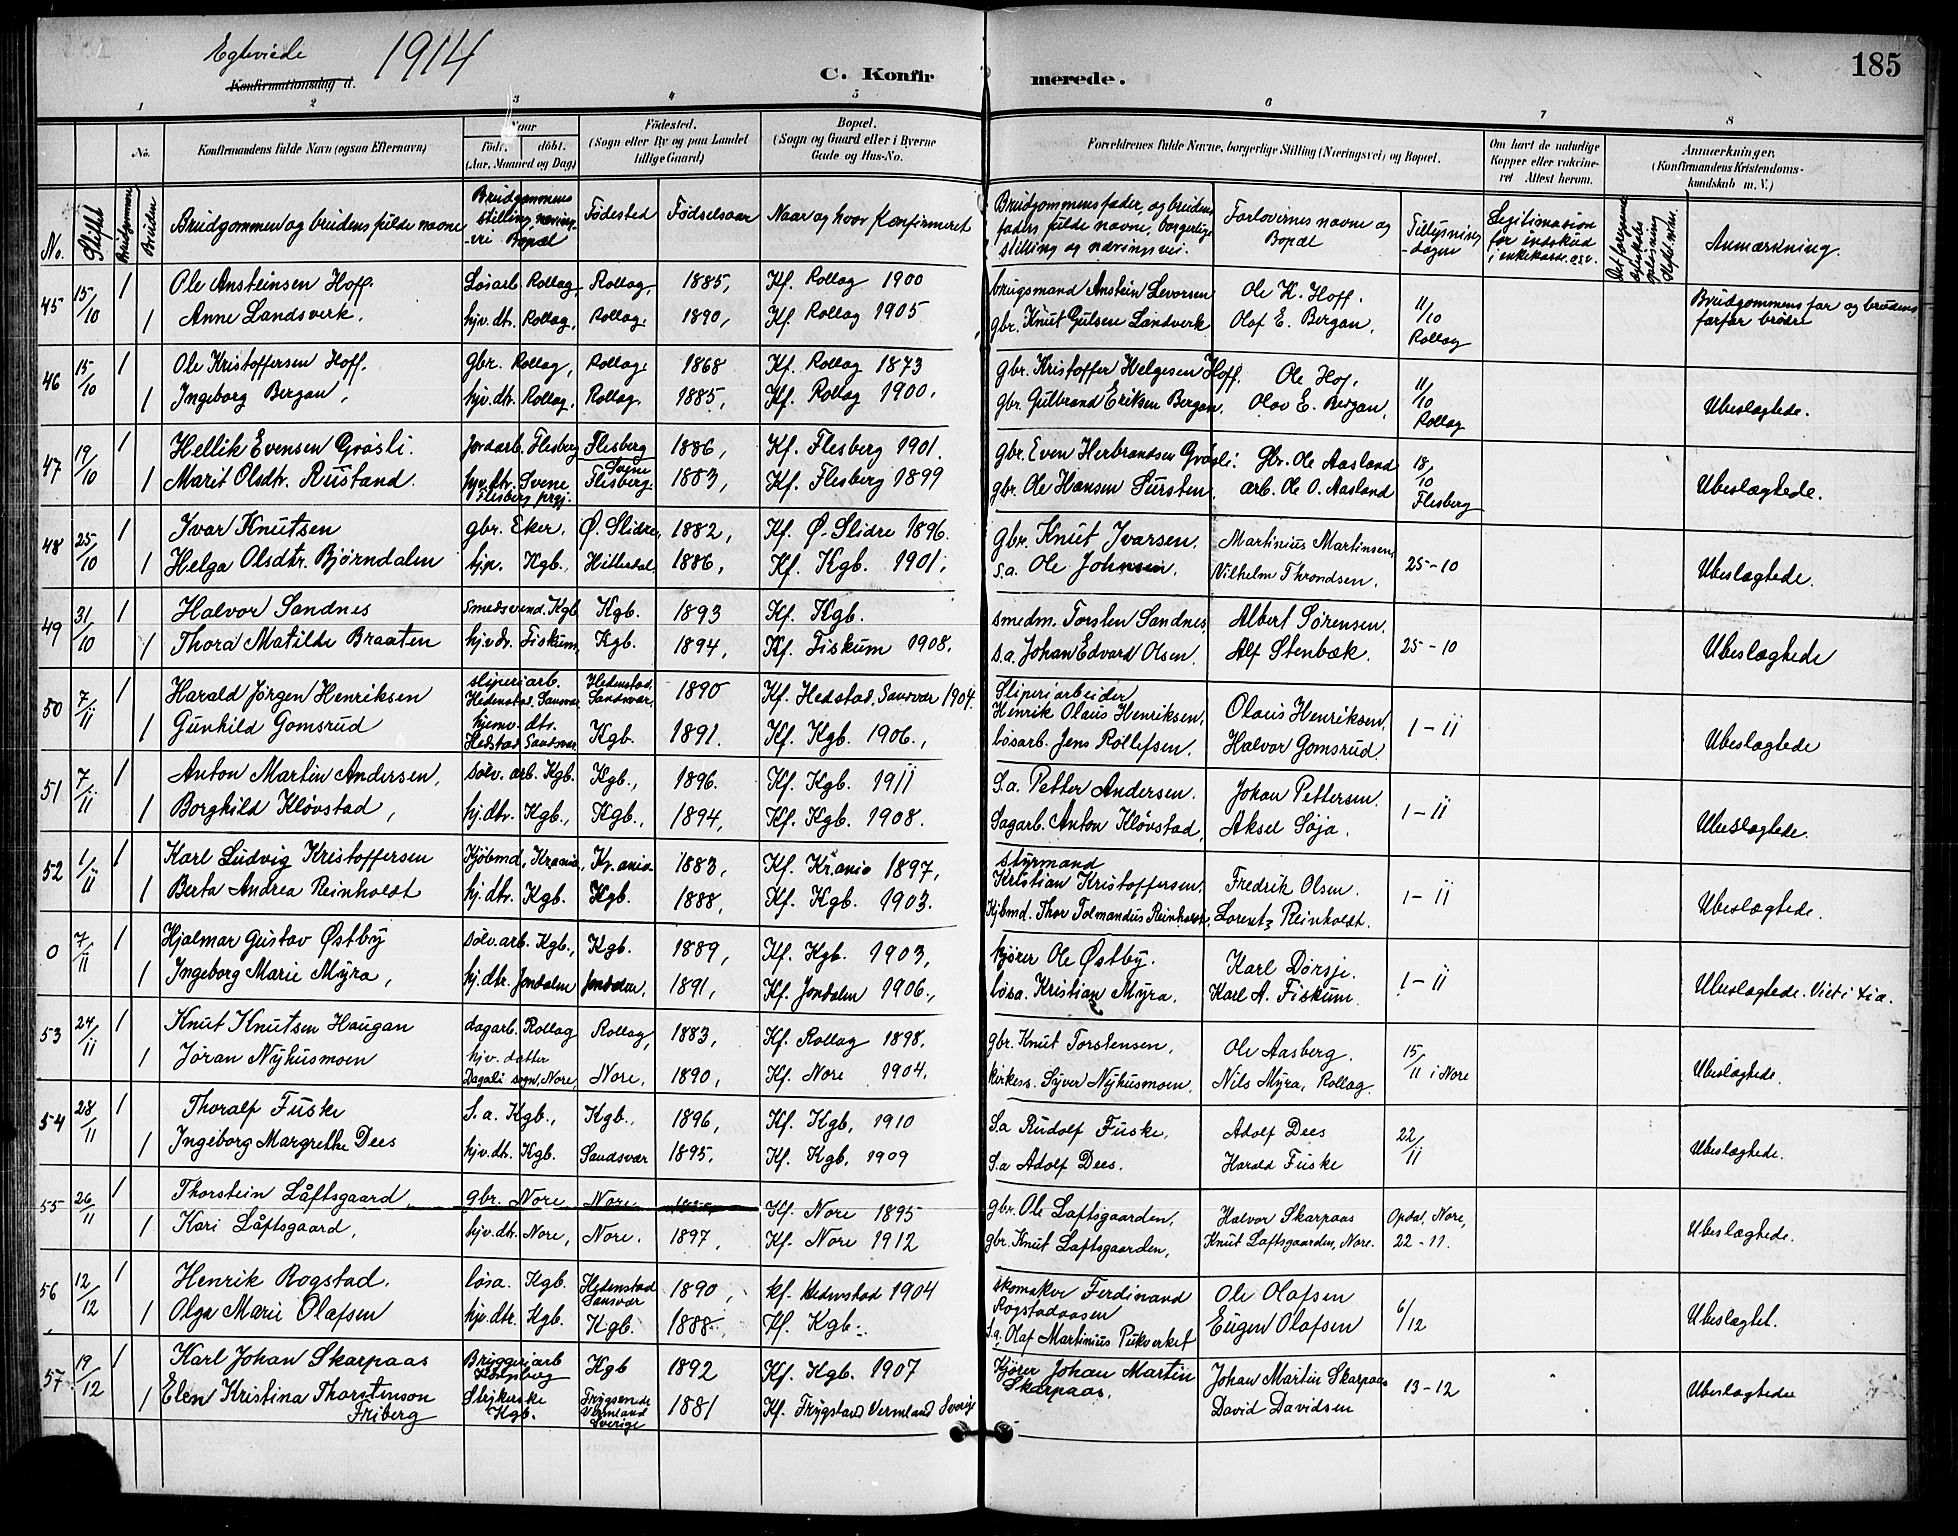 Egteviede 1914
Konfirmationsdag d.
C. Konfirmerede.
185
1 2 3 4 5 6 7 8
No. Konfirmandens fulde Navn (ogsaa Efternavn) Naar født, døbt. (Aar, Maaned og Dag) Fødested. (Sogn eller By og paa Landet tillige Gaard) Bopæl. (Sogn og Gaard eller i Byerne Gade og Hus-No. Forældrenes fulde Navne, borgerlige Stilling (Næringsvei) og Bopæl. Om havt de naturlige Kopper eller vaccineret Attest herom. Anmærkninger. (Konfirmandens Kristendomskundskab m. V.)
No. Stiftet Brudgommen Bruden Brudgommen og brudens fulde navne Brudgommens stilling, næringsvei Bopæl Fødested Fødselsaar Naar og hvor Konfirmeret Brudgommens fader, og brudens faders fulde navne, borgerlige stilling og næringsvei. Forlovernes navne og Bopæl Tillysningsdagen Legitimation for indskud i enkekasse osv. Anmærkning.
45 15/10 1 Ole Ansteinsen Hoff. Løsarb. Rollag, Rollag, 1885, Kf. Rollag 1900 brugsmand Anstein Levorsen Ole K. Hoff. 11/10 Rollag Brudgommens far og brudens farfar brødre
1 Anne Landsverk, hjv. dtr. Rollag, Rollag. 1890, Kf. Rollag 1905 gbr. Knut Gulsen Landverk Olaf E. Bergan,
46 15/10 1 Ole Kristoffersen Hoff. gbr. Rollag, Rollag. 1868 Kf. Rollag 1873 gbr. Kristoffer Helgesen Hoff. Ole Hof, 11/10 Rollag
1 Ingeborg Bergan, hjv. dtr. Rollag, Rollag. 1885, Kf. Rollag 1900. gbr. Gulbrand Eriksen Bergan. Olov E. Bergan, Ubeslagtede.
47 19/10 1 Hellik Evensen Gråsli. jordarb. Flesberg Flesberg 1886, Kf. Flesberg 1901. gbr. Even Herbrandsen Gråsli. Gbr. Ole Aasland 18/10 Flesberg
1 Marit Olsdtr. Rustand. hjv. dtr. Svene Flesberg prgj. Svene Flesberg. 1883, Kf. Flesberg 1899 gbr. Ole Hansen Sursten, arb. Ole O. Aasland Ubeslægtede.
48 25/10 1 Ivar Knutsen gbr. Eker, Ø. Slidre, 1882, Kf. Ø. Slidre 1896. gbr. Knut Ivarsen. Martinius Martinsen, 25-10
1 Helga Olsdtr. Bjørndalen hjp. Kgb., Hitterdal, 1886, Kf. Kgb. 1901, s.a. Ole Johnsen. Vilhelm Throndsen. Ubeslagtede.
49 31/10 1 Halvor Sandnes smedsvend. Kgb Kgb. 1893 Kf. Kgb. smedm. Torsten Sandnes, Albert Sørensen, 25-10
1 Thora Matilde Braaten hjv. dr. Fiskum, Kgb. 1894, Kf. Fiskum 1908. s.a. Johan Edvard Olsen. Alf Stenbæk. Ubeslægtede
50 7/11 1 Harald Jørgen Henriksen sliperiarb. Hedenstad, Sansvær Hedenstad, Sandsvær, 1890 Kf. Hedstad, Sansvær 1904. Sliperiarbeider Henrik Olaus Henriksen, Olaus Henriksen, 1-11
1 Gunhild Gomsrud hjemv. dtr. Hedstad Sandsvær Kgb. 1891. Kf. Kgb. 1906., løsarb. Jens Rollefsen. Halvor Gomsrud. Ubeslægtede
51 7/11 1 Anton Martin Andersen, sølv. arb. Kgb. Kgb., 1896. Kf. Kgb. 1911 S.a. Petter Andersen. Johan Pettersen. 1-11
1 Borghild Kløvstad, hj. dtr. Kgb., Kgb., 1894, Kf. Kgb. 1908. Sagarb. Anton Kløvstad, Aksel Søja. Ubeslagtede.
52 1/11 1 Karl Ludvig Kristoffersen Kjøbmd, Kr.ania, Kr.ania 1883, Kf. Kr.ania 1897, styrmand Kristian Kristoffersen, Fredrik Olsen. 1-11
1 Berta Andrea Reinholdt hj. dtr. Kgb. Kgb. 1888, Kf. Kgb. 1903. Kjbmd. Thor Tolmandus Reinholdt, Lorentz Reinholdt. Ubeslægtede.
0 7/11 1 Hjalmar Gustav Østby sølv. arb. Kgb., Kgb. 1889, Kf. Kgb. 1903, kjører Ole Østby. Karl Dørsje. 1-11
1 Ingeborg Marie Myra, hj. dtr. Jondalen Jondalen, 1891, Kf. Jondalen 1906., løsa. Kristian Myra. Karl A. Fiskum. Ubeslagtede.
53 24/11 1 Knut Knutsen Haugan dagarb. Rollag Rollag, 1883, Kf. Rollag 1898. gbr. Knut Torstensen, Ole Aasberg. 15/11 i Nore
1 Jøran Nyhusmoen hjv. datter Dagali sogn, Nore, Nore, 1890, Kf. Nore 1904. kirkess. Syver Nyhusmoen, Nils Myra, Rollag. Ubeslagtede.
54 28/11 1 Thoralf Fuske S.a. Kgb., Kgb., 1896, Kf. Kgb, 1910 S.a Rudolf Fuske, Adolf Dees 22/11
1 Ingeborg Margrethe Dees hjv. dtr. Kgb. Sandsvær 1895, Kf. Kgb, 1909 S.a Adolf Dees. Harald Fuske Ubeslægtede.
55 26/11 1 Thorstein Låftsgaard gbr. Nore, Nore, Kf. Nore 1895 gbr. Ole Laftsgaarden, Halvor Skarpaas Opdal, Nore,
1 Kari Låftsgaard, hjv. dtr. Nore, Nore. 1897, Kf. Nore 1912 gbr. Knut Laftsgaarden, Knut Laftsgaarden, Nore. 22-11. Ubeslægtede.
56 12/12 1 Henrik Rogstad. løsa. Kgb. Hedenstad Sansvær 1890, kf. Hedenstad 1904 skomaker Ferdinand Rogstadaasen Ole Olafsen 6/12
1 Olga Marie Olafsen hjv. dtr. Kgb. Kgb. 1888. Kf. Kgb. S.a. Olaf Martinius Pukverket Eugen Olafsen Ubeslagtet.
57 19/12 1 Karl Johan Skarpaas Bryggeriarb Kongsberg Kgb 1892 Kf. Kgb. 1907 Kjører Johan Martin Skarpaas, Johan Martin Skarpaas 13-12
1 Elen Kristina Thorstinson Friberg Strykerske Kgb. Vermland Sverige 1881 Kf. Frygstand Vermland Sverige David Davidsen Ubeslagtede